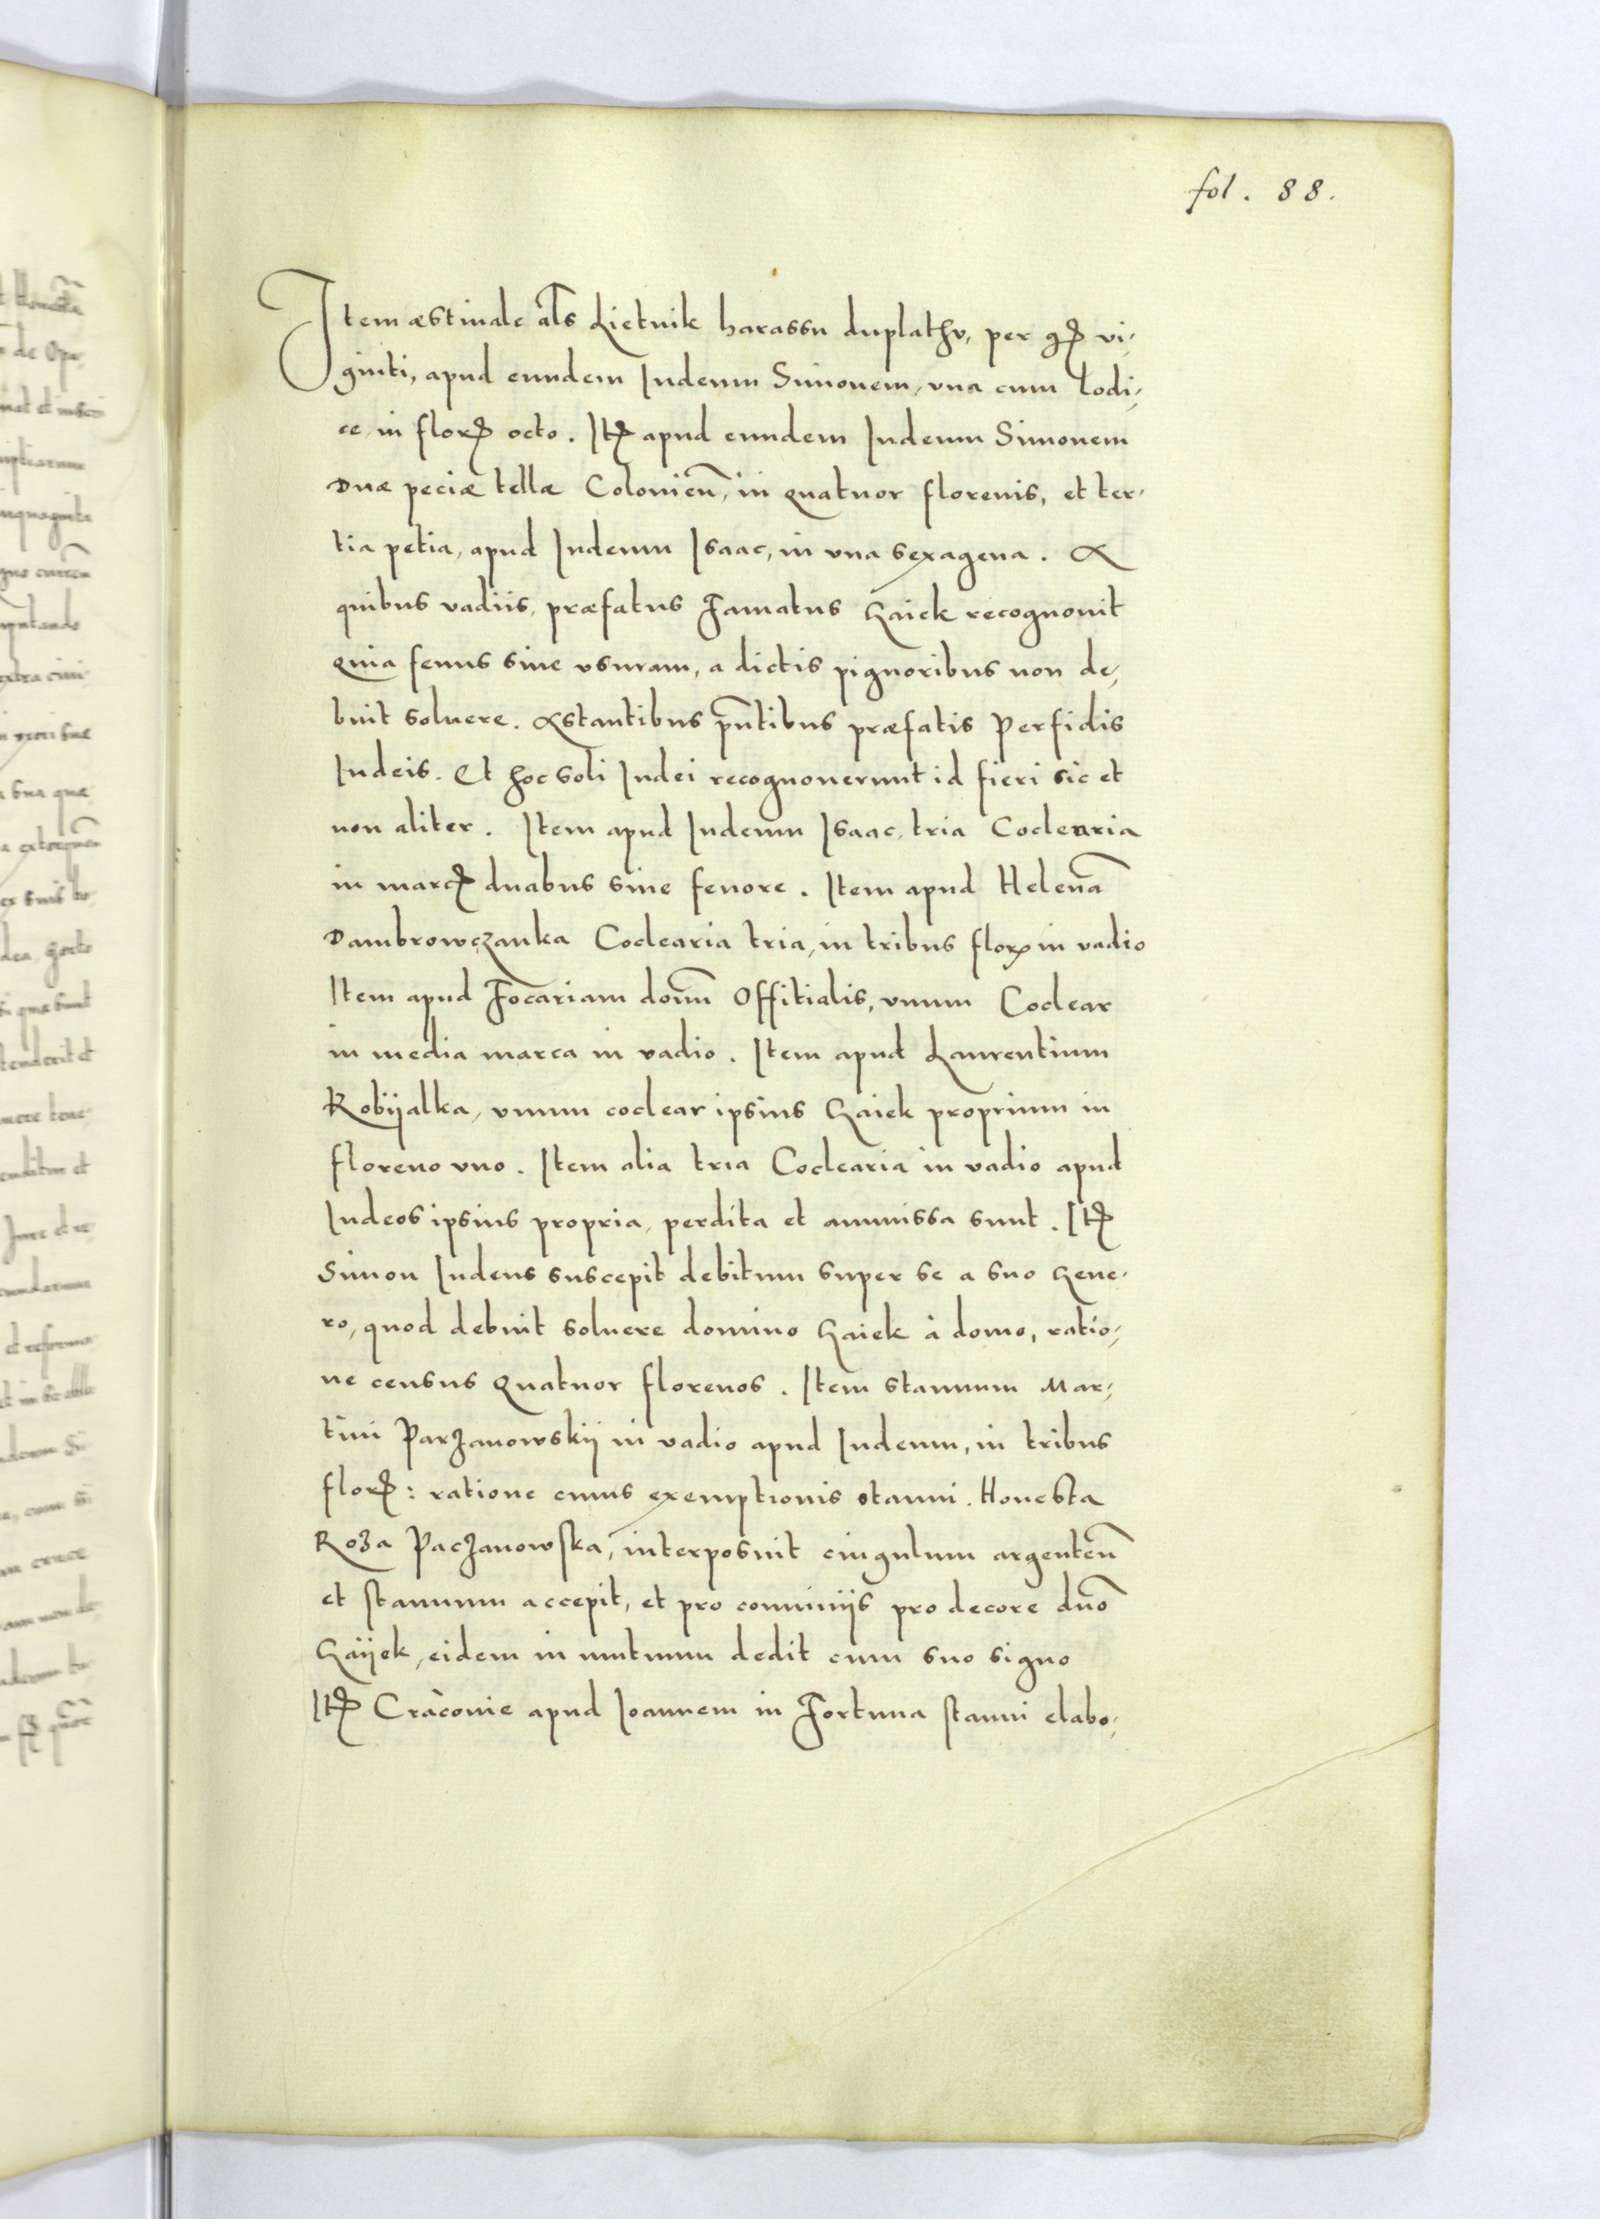 fol. 88.
Item æstiuale al̃s Lietnik harassu duplathỿ, per gꝝ vi-
ginti, apud eundem Iudeum Simonem, vna cum lodi-
ce, in florꝝ octo. Itꝝ apud eundem Iudeum Simonem
Duæ peciæ tellæ Colonień, in quatuor florenis, et ter-
tia petia, apud Iudeum Isaac, in vna sexagena. A
quibus vadiis, præfatus Famatus Gaiek recognouit
quia fenus siue vsuram, a dictis pignoribus non de-
buit soluere. Astantibus pñtibus præfatis Perfidis
Iudeis. Et hoc soli Iudei recognouerunt id fieri sic et
non aliter. Item apud Iudeum Isaac, tria Coclearia
in marcꝝ duabus sine fenore. Item apud Helenã
Dambrowczanka Coclearia tria, in tribus florꝝ in vadio
Item apud Focariam domñ Offitialis, vnum Coclear
in media marca in vadio. Item apud Laurentium
Robijalka, vnum coclear ipsius Gaiek proprium in
floreno vno. Item alia tria Coclearia in vadio apud
Iudeos ipsius propria, perdita et ammissa sunt. Itꝝ
Simon Iudeus suscepit debitum super se a suo Gene-
ro, quod debuit soluere domino Gaiek à domo, ratio-
ne census quatuor florenos. Item stannum Mar-
tini Parzanowskij in vadio apud Iudeum, in tribus
florꝝ: ratione cuius exemptionis stanni. Honesta
Roza Paczanowska, interposuit cingulum argenteũ
et stannum accepit, et pro conuiuijs pro decore dño
Gaijek, eidem in mutuum dedit cum suo signo
Itꝝ Cracouie apud Ioannem in Fortuna stanni elabo-